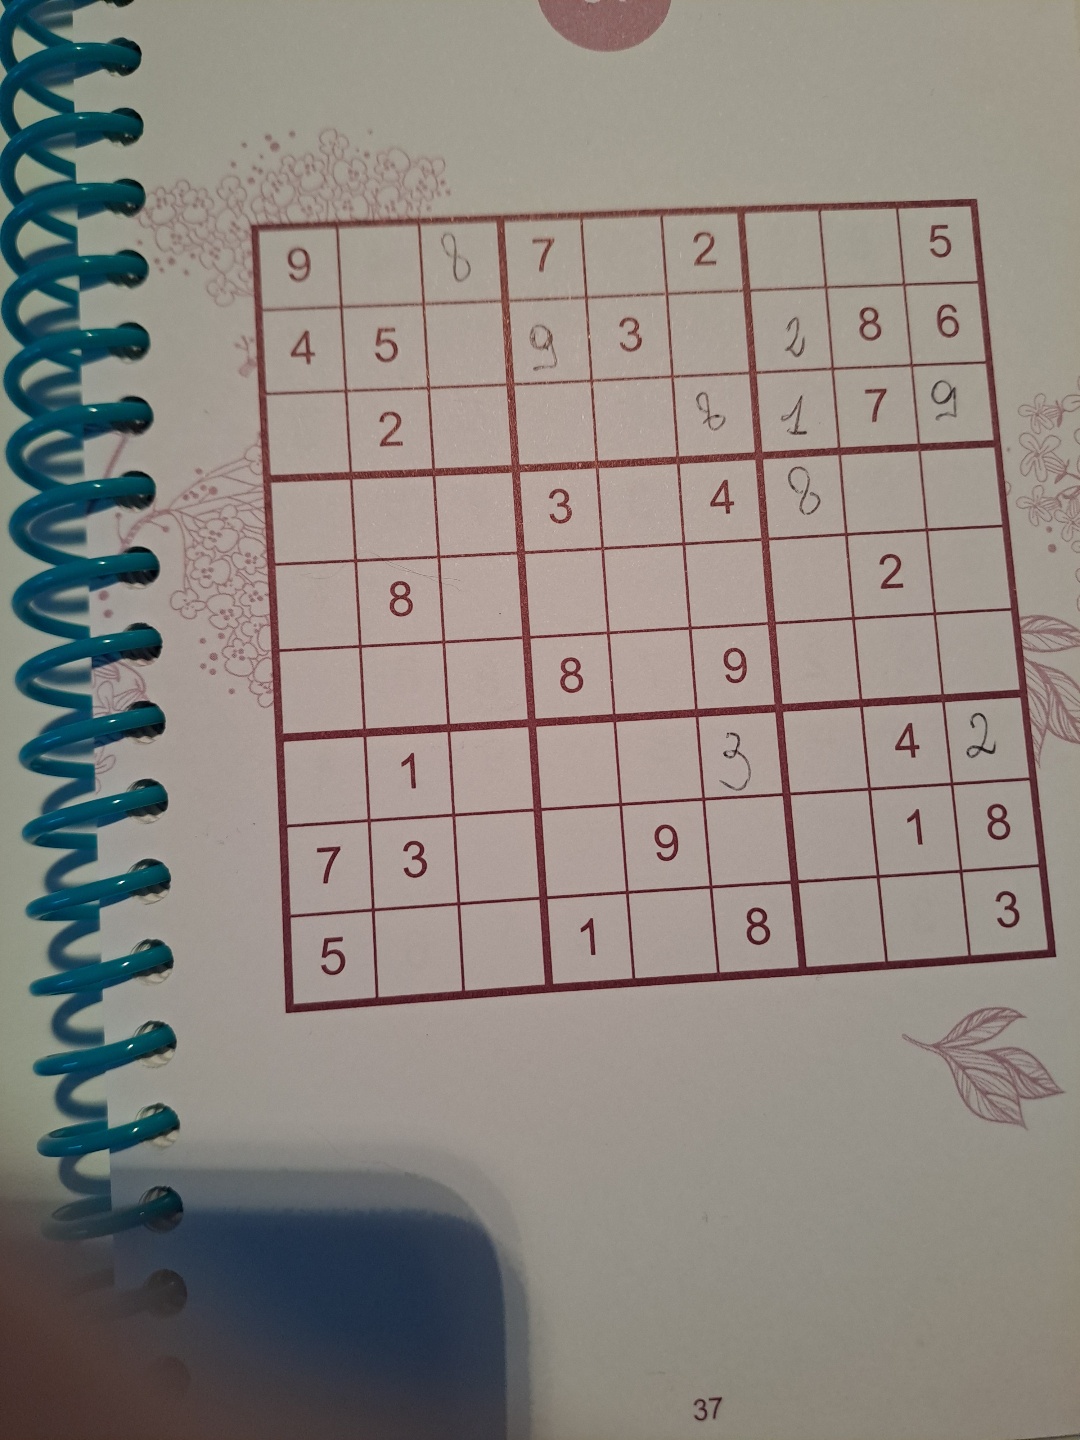 9 8 7 2 5
4 5 9 3 2 8 6
2 8 1 7 9
3 4 8
8 2
8 9
1 3 4 2
7 3 9 1 8
5 1 8 3
37